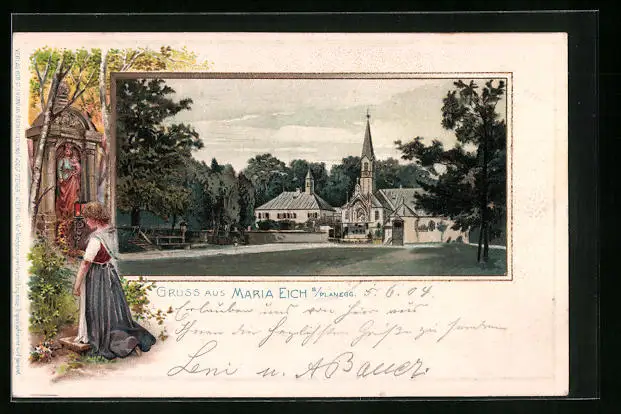 GRUSS AUS MARIA EICH B/PLANEGG. 5.6.04
Erlauben uns von hier aus
Ihnen die herzlichsten Grüße zu senden
Leni u. A Bauer.